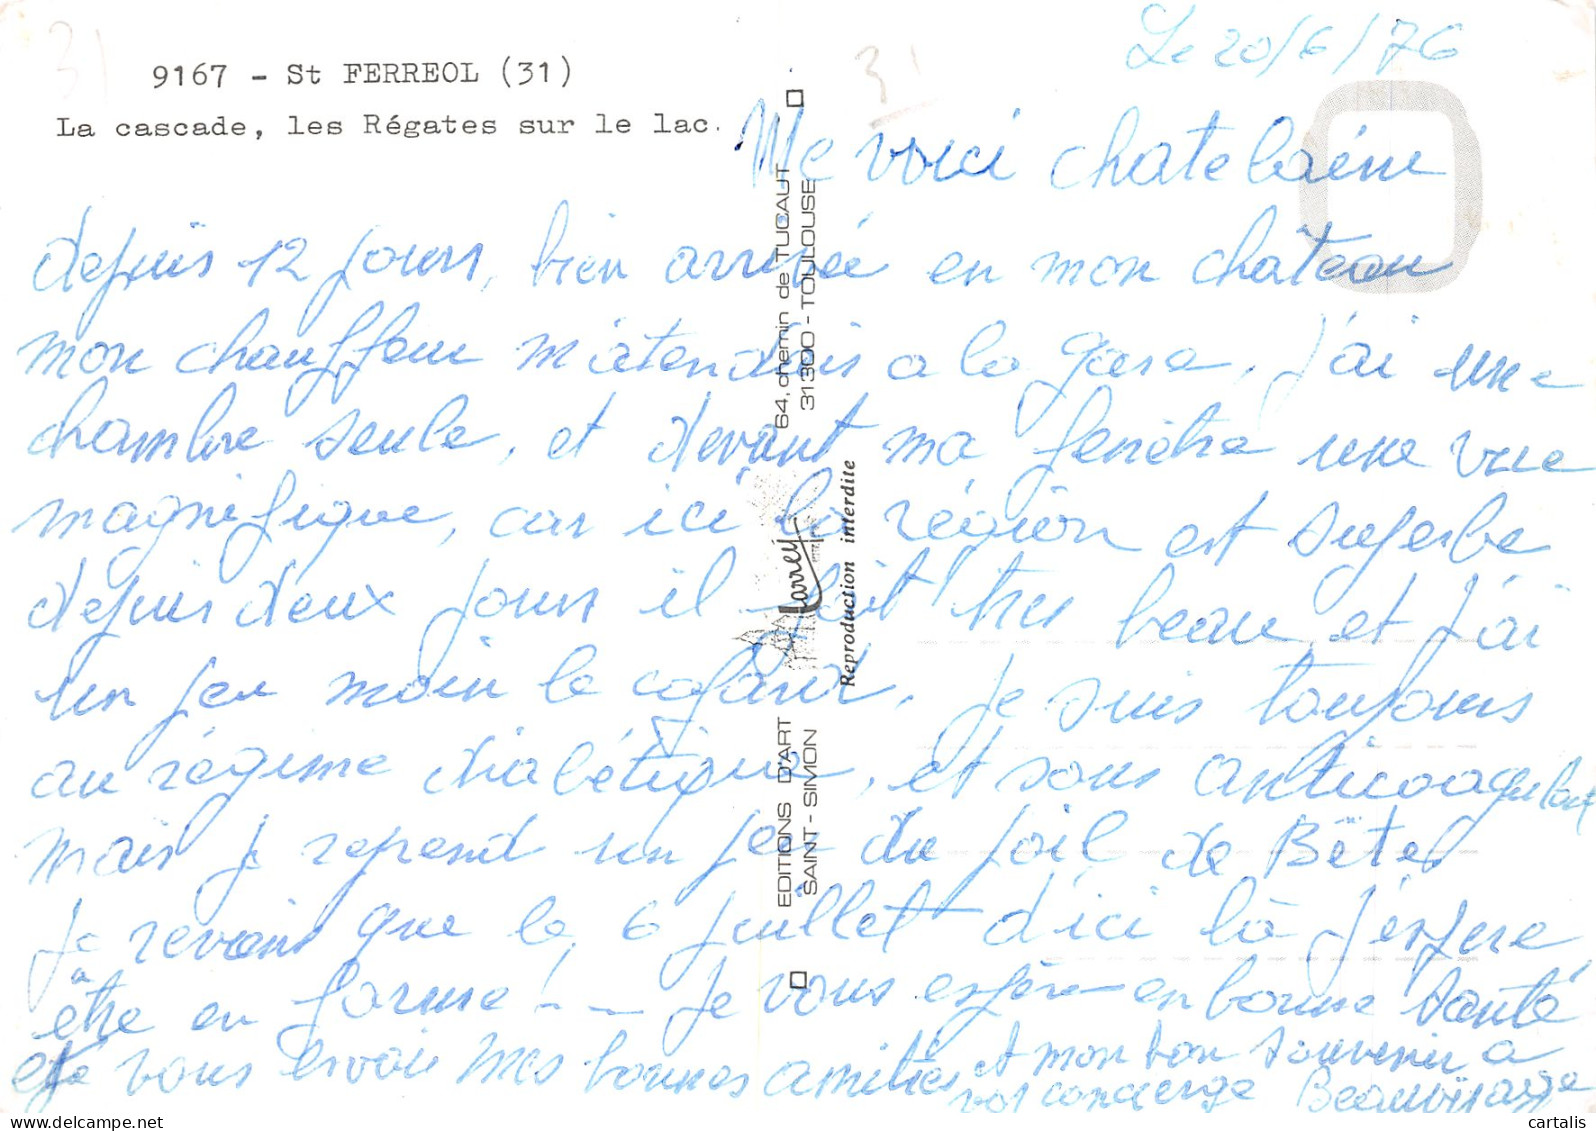 31
31
9167 - St FERREOL (31)
La cascade, les Régates sur le lac.
Le 20/6/76
Me voici chatelaine
depuis 12 jours, bien arrivée en mon château
mon chauffeur m'atendais a la gare, j'ai une
chambre seule, et devant ma fenêtre une vue
magnifique, car ici la région est superbe
depuis deux jours il fait tres beau, et j'ai
un peu moin le cafard, je suis toujours
au régime diabétique, et sous anticoagulant
mais je reprend un peu du poil de Bête
je revient que le 6 juillet d'ici là j'espere
être en forme! -- Je vous espère en bonne santé
et je vous envoie mes bonnes amitiés et mon bon souvenir a
vos concierge Beauvisage
64, chemin de TUCAUT
31300 - TOULOUSE
Larrey
Reproduction interdite
EDITIONS D'ART
SAINT - SIMON
delcampe.net
cartalis